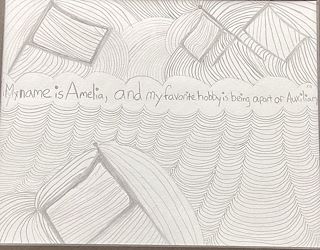 My name is Amelia, and my favorite hobby is being apart of Auxilian